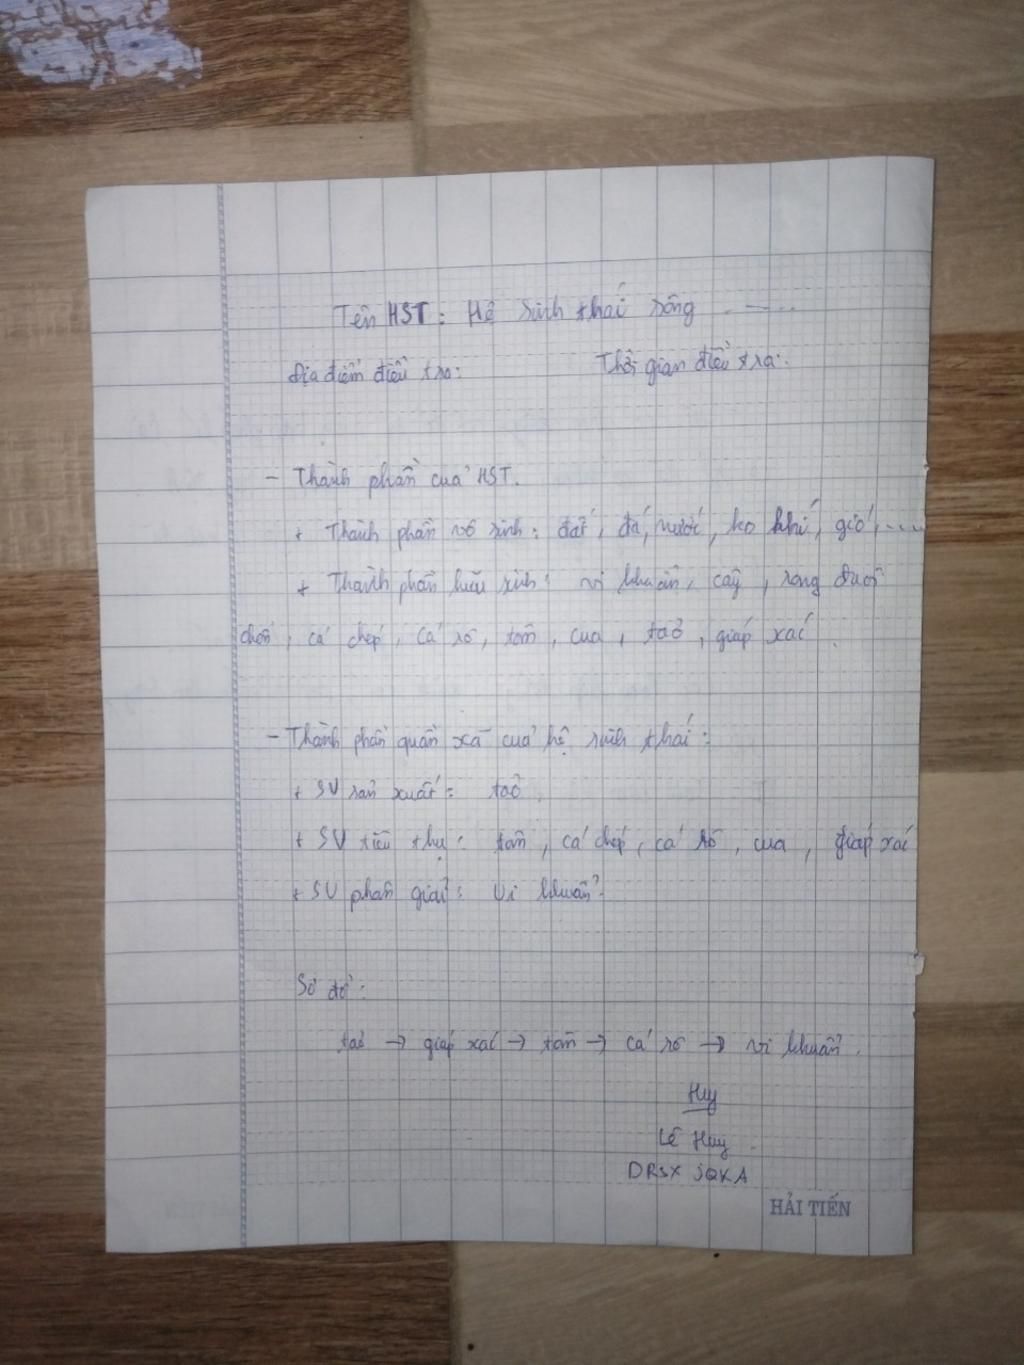 Tên HST: Hệ sinh thái sông ......
Địa điểm điều tra: Thời gian điều tra:
- Thành phần của HST.
+ Thành phần vô sinh: đất, đá, nước, ko khí, gió, ....
+ Thành phần hữu sinh: vi khuẩn, cây, rong đuôi
chồn, cá chép, cá rô, tôm, cua, tảo, giáp xác.
- Thành phần quần xã của hệ sinh thái:
+ SV sản xuất: tảo.
+ SV tiêu thụ: tôm, cá chép, cá rô, cua, giáp xác
+ SV phân giải: Vi khuẩn.
Sơ đồ:
tảo → giáp xác → tôm → cá rô → vi khuẩn.
Huy
Lê Huy.
DRSX JQKA
HẢI TIẾN